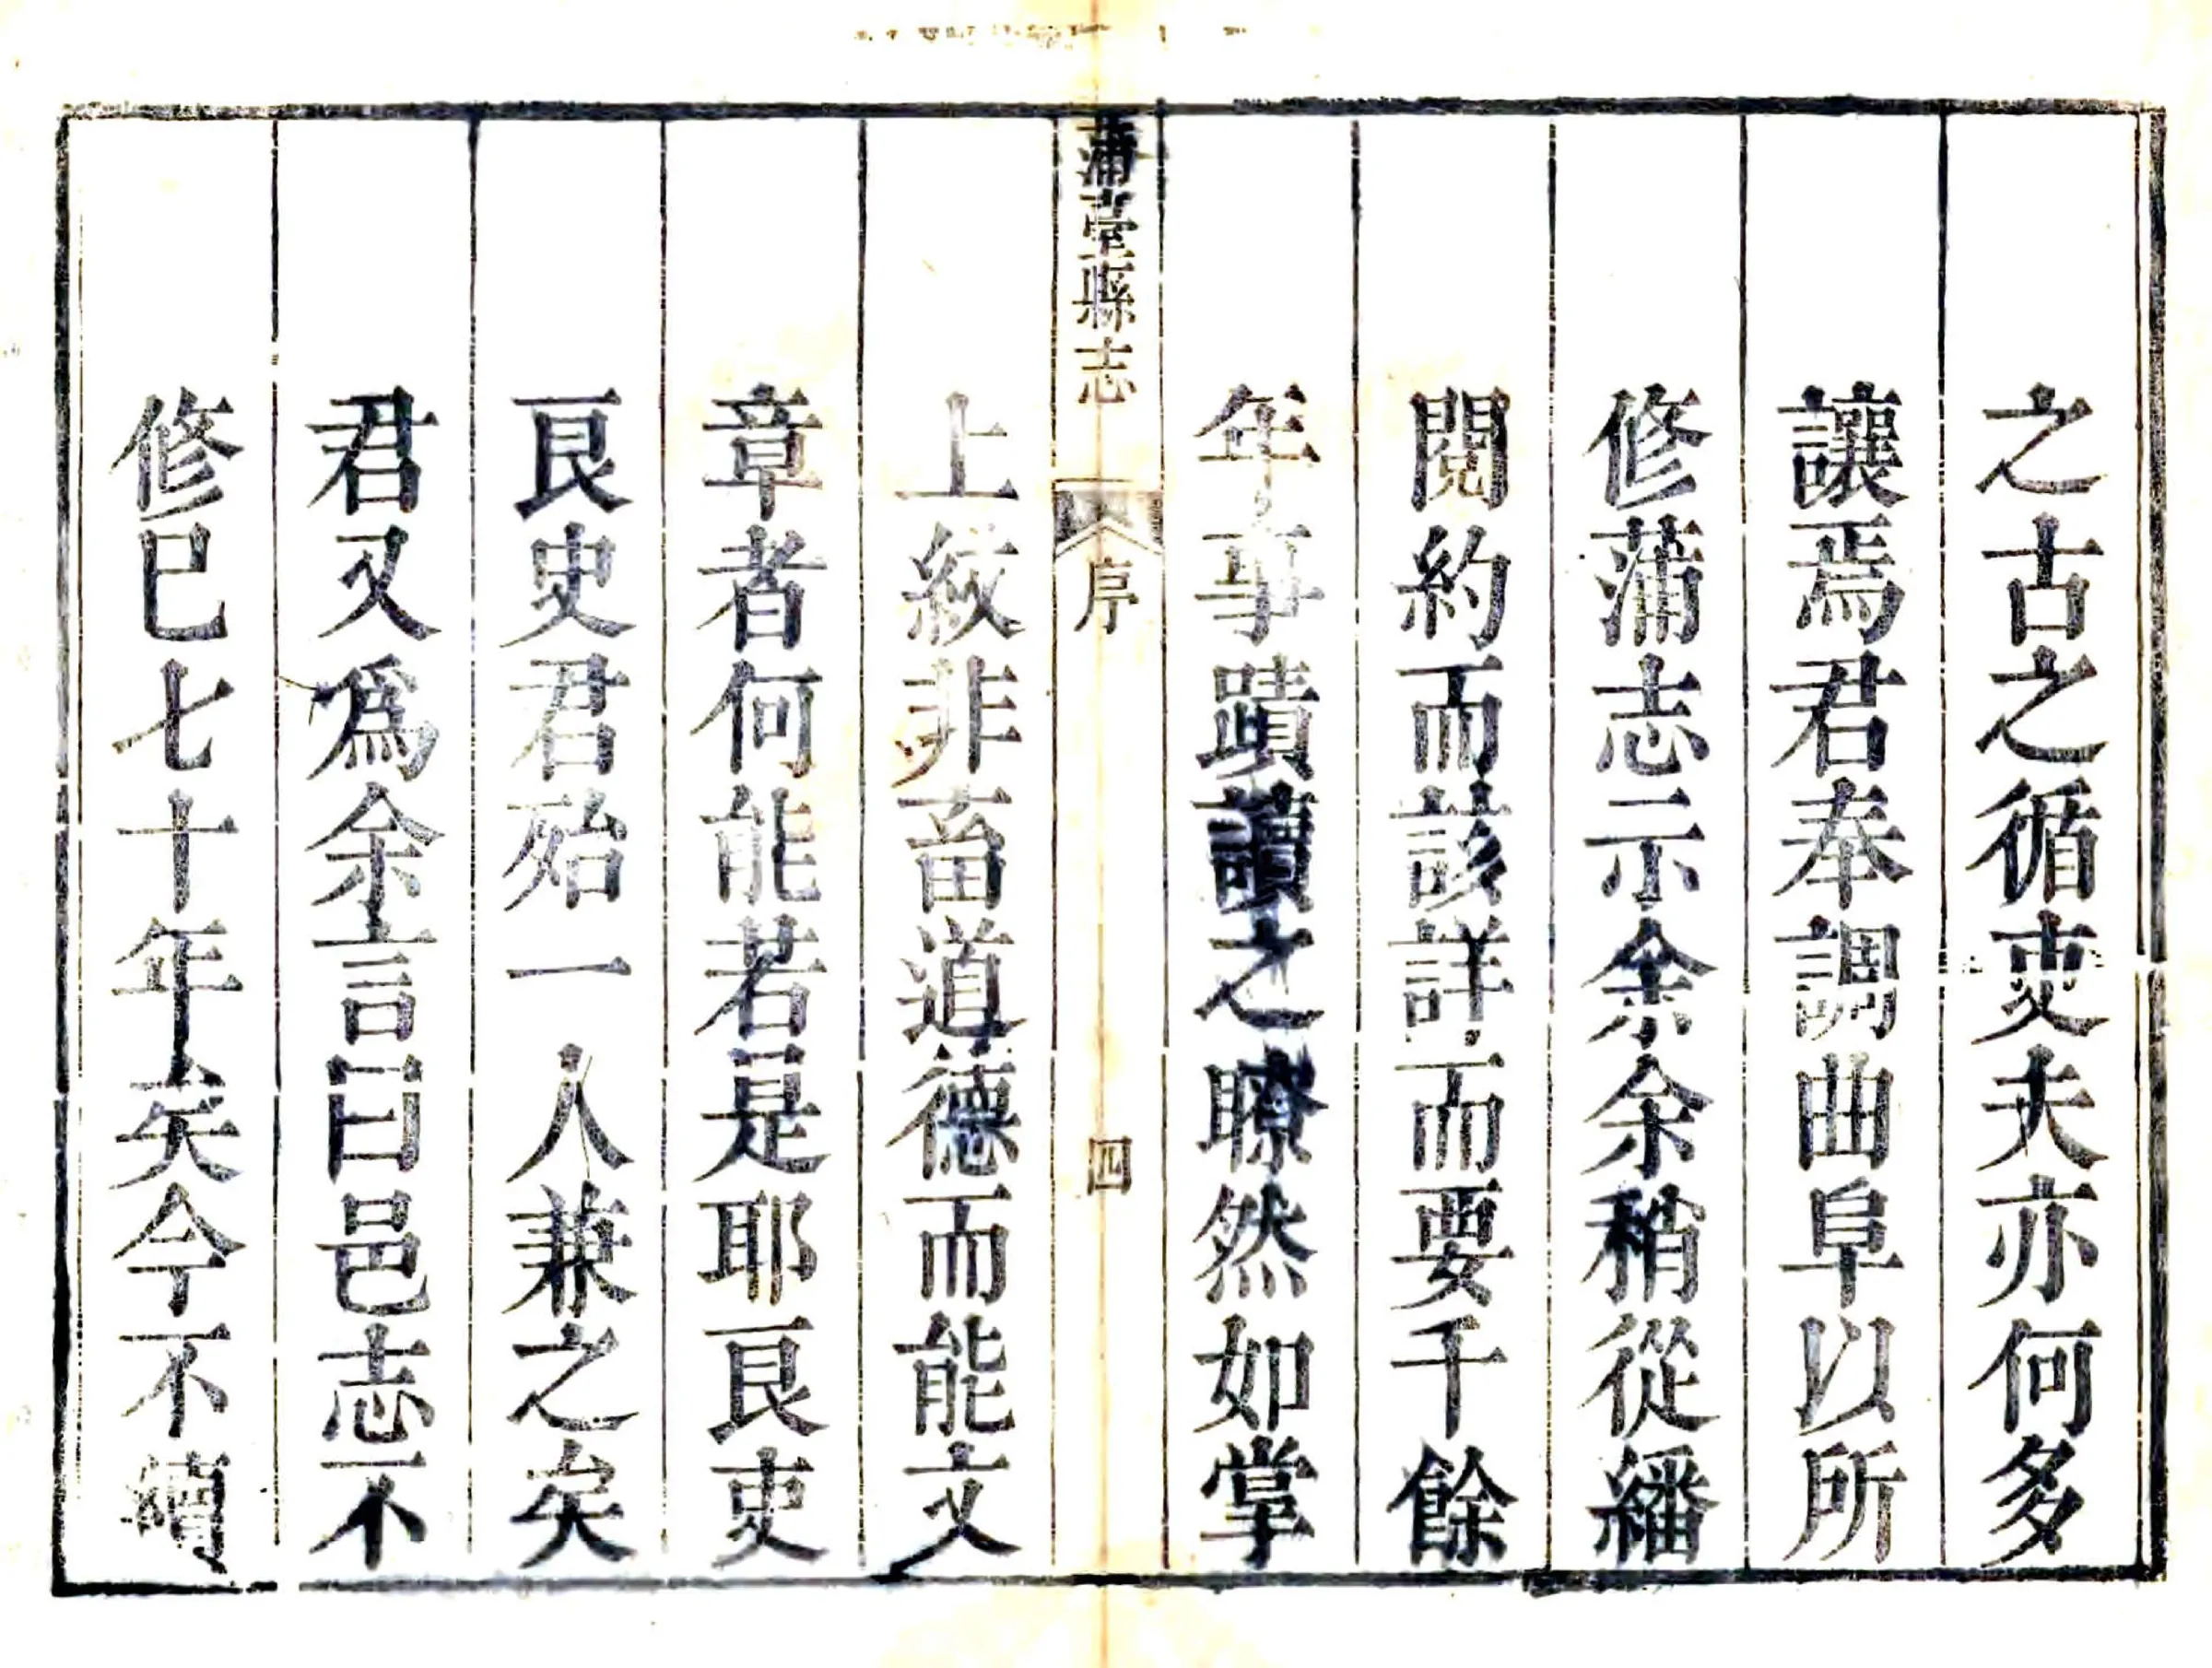 之古之循吏夫亦何多
讓焉君奉調曲阜以所
修蒲志示余余稍從繙
閱約而該詳而要千餘
年事蹟讀之瞭然如掌
蒲臺縣志
序
四
上紋非畜道德而能文
章者何能若是耶良吏
良史君殆一人兼之矣
君又爲余言曰邑志不
修巳七十年矣今不續